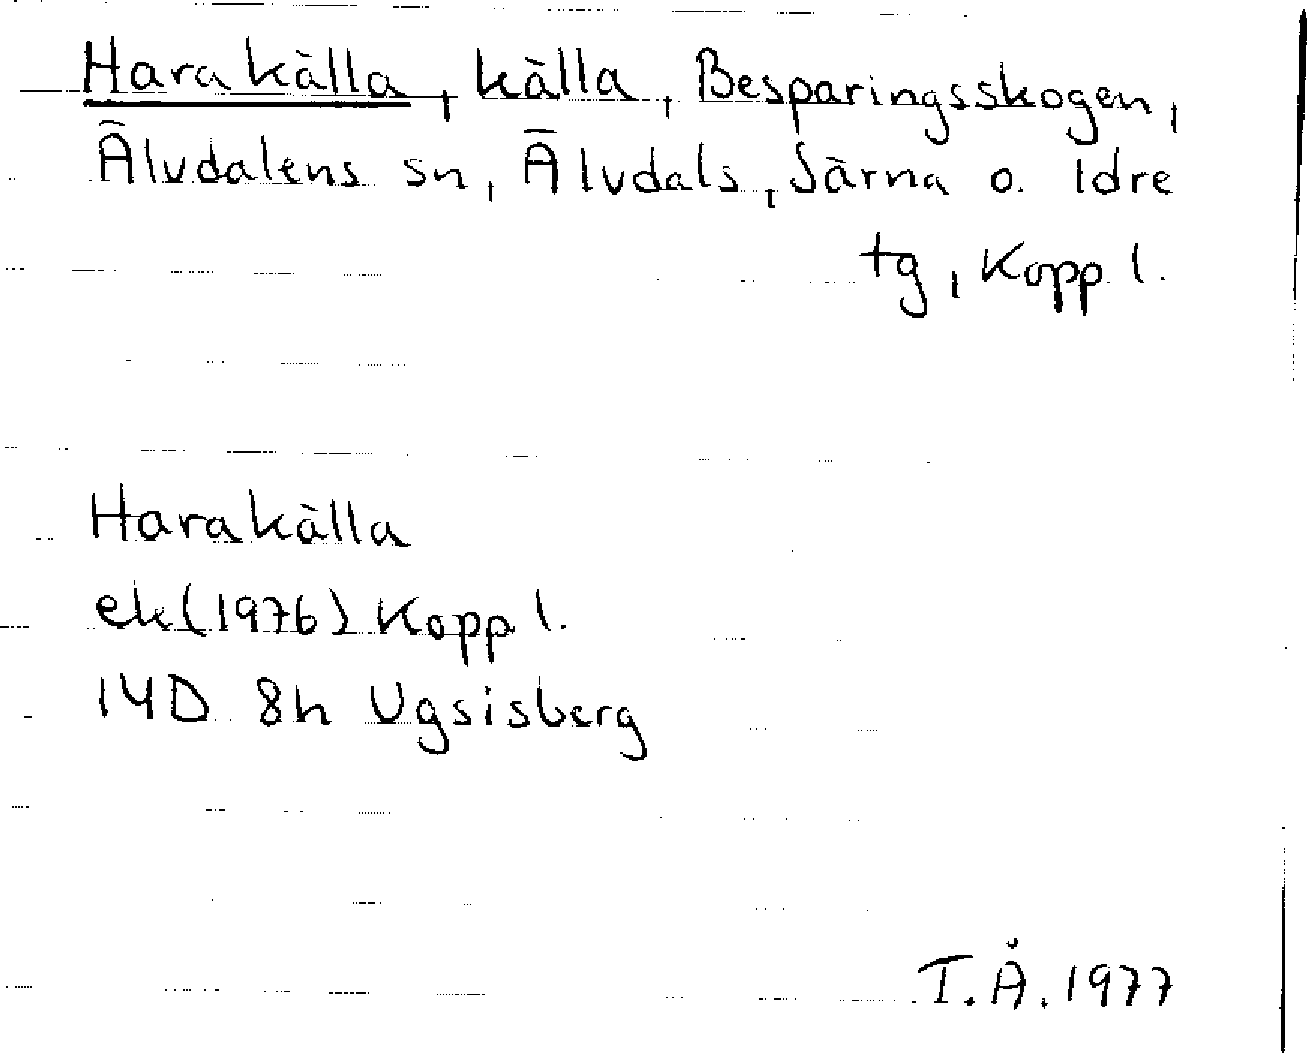 Harakälla, källa, Besparingsskogen,
Älvdalens sn, Älvdals, Särna o. Idre
tg, Kopp l.
Harakälla
ek(1976) Kopp l.
14D 8h Ugsisberg
T.Å. 1977